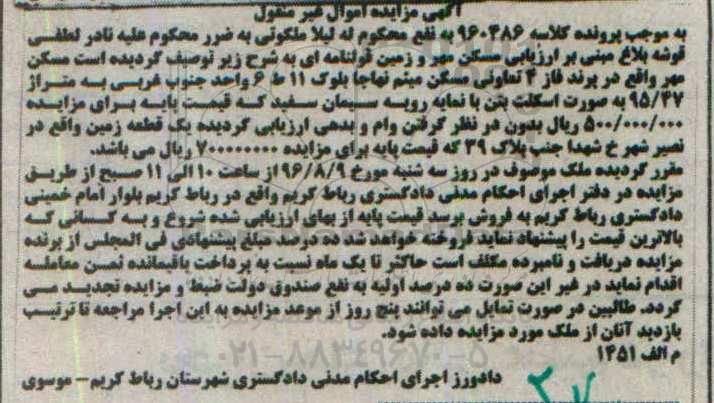 آگهی مزایده اموال غیر منقول
به موجب پرونده کلاسه ۹۶۰۳۸۶ به نفع محکوم له لیلا ملکوتی به ضرر محکوم علیه نادر لطفی
قوشه بلاغ مبنی بر ارزیابی مسکن مهر و زمین قولنامه ای به شرح زیر توصیف گردیده است مسکن
مهر واقع در پرند فاز ۴ تعاونی مسکن میثم نهاجا بلوک ۱۱ ط ۶ واحد جنوب غربی به متراژ
۹۵/۴۷ به صورت اسکلت بتن با نمایه رویه سیمان سفید که قیمت پایه برای مزایده
۵۰۰/۰۰۰/۰۰۰ ریال بدون در نظر گرفتن وام و بدهی ارزیابی گردیده یک قطعه زمین واقع در
نصیر شهر خ شهدا جنب پلاک ۳۹ که قیمت پایه برای مزایده ۷۰۰۰۰۰۰۰۰ ریال می باشد.
مقرر گردیده ملک موصوف در روز سه شنبه مورخ ۹۶/۸/۹ از ساعت ۱۰ الی ۱۱ صبح از طریق
مزایده در دفتر اجرای احکام مدنی دادگستری رباط کریم واقع در رباط کریم بلوار امام خمینی
دادگستری رباط کریم به فروش برسد قیمت پایه از بهای ارزیابی شده شروع و به کسانی که
بالاترین قیمت را پیشنهاد نماید فروخته خواهد شد ده درصد مبلغ پیشنهادی فی المجلس از برنده
مزایده دریافت و نامبرده مکلف است حاکثر تا یک ماه نسبت به پرداخت باقیمانده ثمن معامله
اقدام نماید در غیر این صورت ده درصد اولیه به نفع صندوق دولت ضبط و مزایده تجدید می
گردد. طالبین در صورت تمایل می توانند پنج روز از موعد مزایده به این اجرا مراجعه تا ترتیب
بازدید آنان از ملک مورد مزایده داده شود.
م الف ۱۴۵۱
دادورز اجرای احکام مدنی دادگستری شهرستان رباط کریم – موسوی
۰۲۱-۸۸۳۴۹۶۷۰-۵